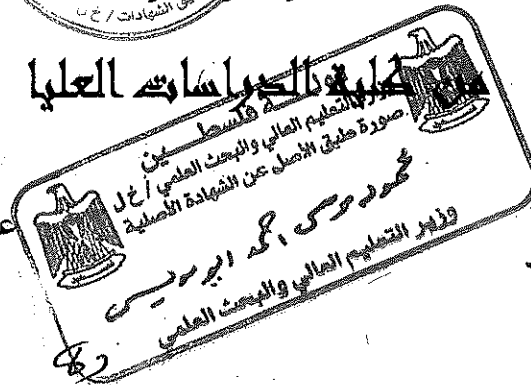 الشهادات / خ ل
من كلية الدراسات العليا
دولة فلسطين
وزارة التعليم العالي والبحث العلمي / خ ل
صورة طبق الأصل عن الشهادة الأصلية
محمود موسى احمد ابو
وزير التعليم العالي والبحث العلمي